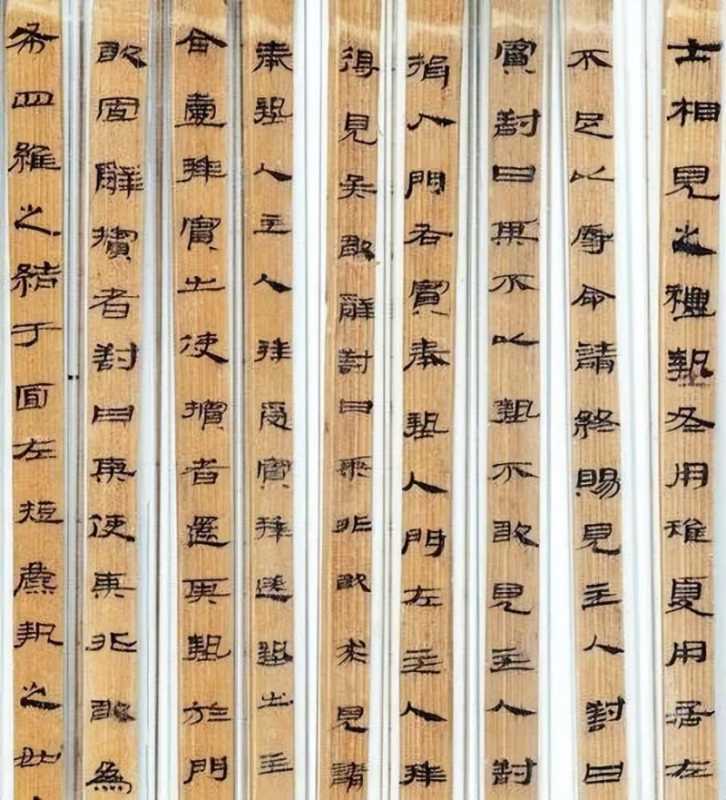 士相見之禮摯冬用雉夏用居左
不足以辱命請終賜見主人對曰
賓對曰某不以摯不敢見主人對
揖入門右賓奉摯入門左主人拜
得見矣敢辭對曰某非敢求見請
奉摯入主人拜受賓拜送摯出主
合壹拜賓出使擯者還其摯於門
敢固辭擯者對曰某使某非敢為
布四維之結于面左執之